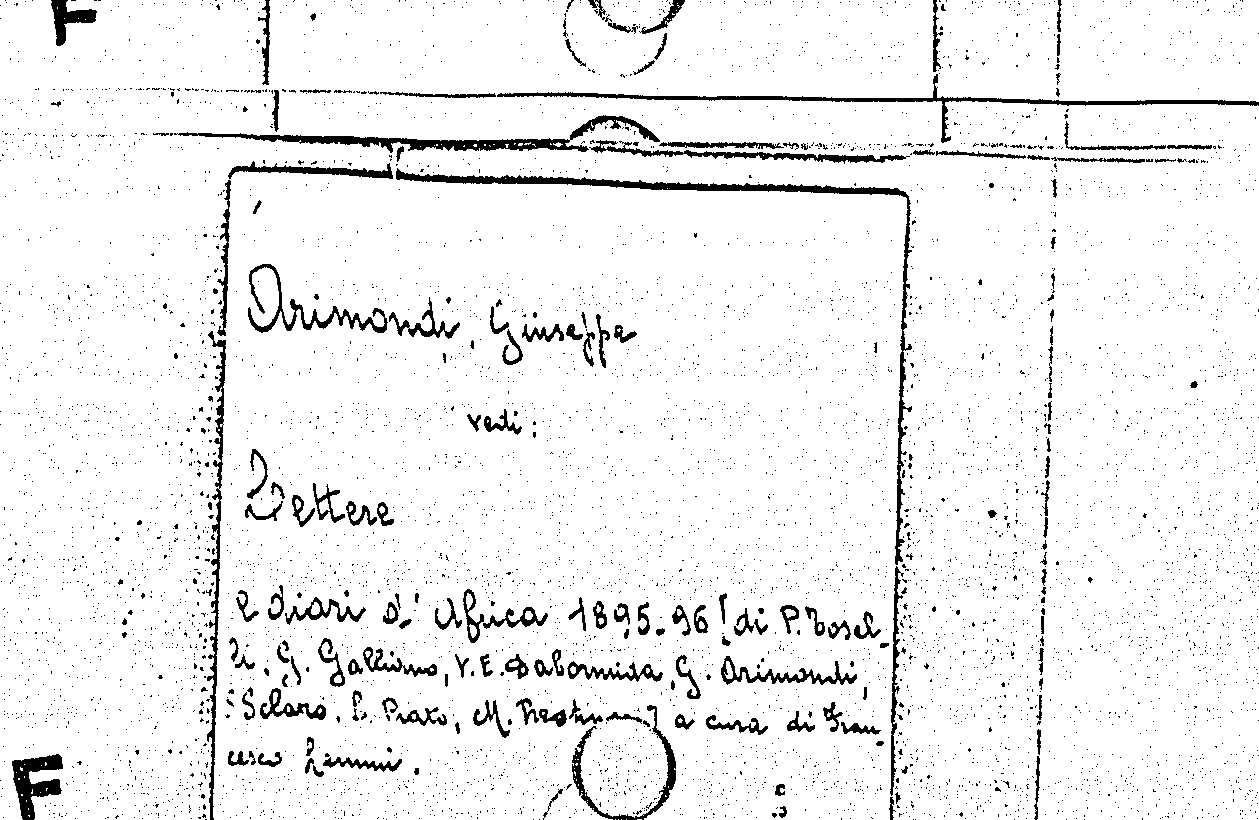 F
Arimondi, Giuseppe
vedi:
Lettere
e diari d'Africa 1895-96 [di P. Bosel-
li, G. Galliano, V. E. Dabormida, G. Arimondi,
Sclaro, L. Prato, M. ] a cura di Fran-
cesco Lemmi.
F